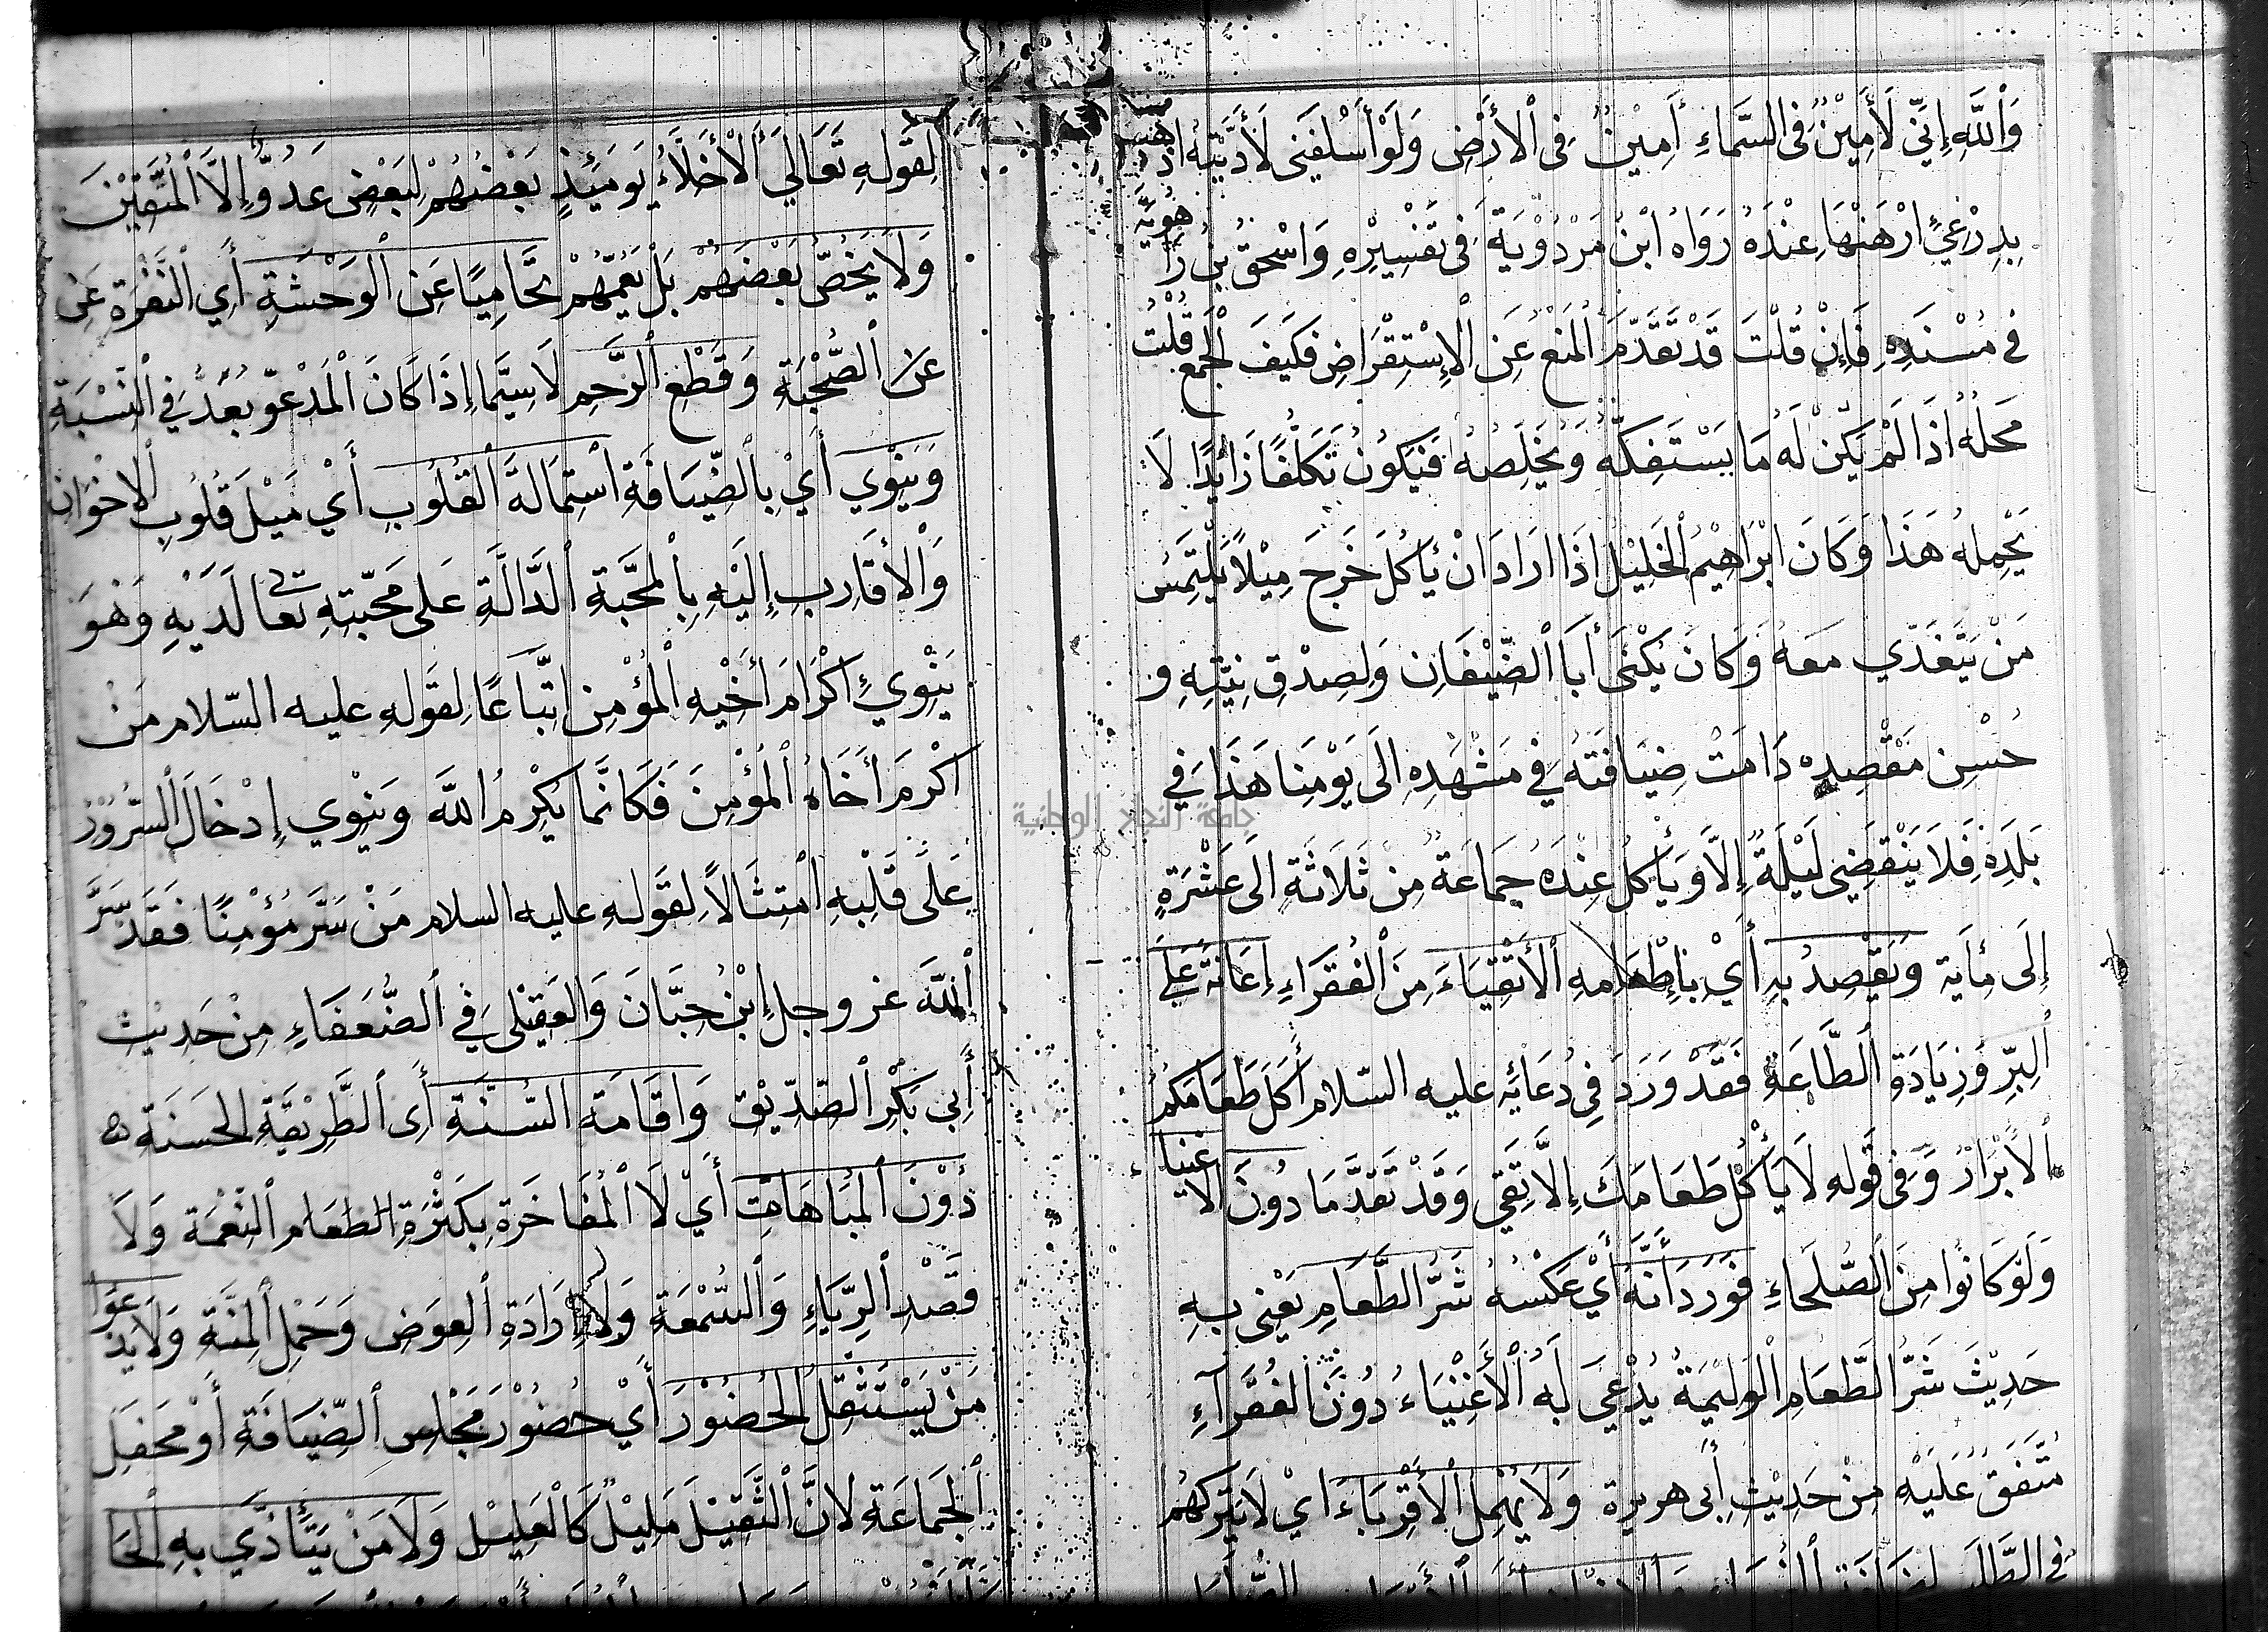 وَاللَّهِ إِنِّي لَأَمِيْنٌ فِى السَّمَاءِ أَمِيْنٌ فِى الْأَرْضِ وَلَوْ أَسْلَفَنِى لَأَدَّيْتُهُ اذهبـ
بِدِرْعِيْ ارْهَنْهَا عِنْدَهُ رَوَاهُ ابْنُ مَرْدُوْيَةَ فِى تَفْسِيْرِهِ وَاسْحٰقُ بْنُ رَا هُويَة
فِى مُسْنَدِهِ فَإِنْ قُلْتَ قَدْ تَقَدَّمَ الْمَنْعُ عَنِ الْإِسْتِقْرَاضِ فَكَيْفَ الْجَمْعُ قُلْتُ
مَحَلُهُ اذَا لَمْ يَكُن لَهُ مَا يَسْتَفِكُّهُ وَيُخَلِّصُهُ فَيَكُوْنُ تَكَلُّفًا زَائِدًا لَا
يَحْمِلُهُ هَذَا وَكَانَ ابْرَاهِيْمُ الْخَلِيْلُ اذَا ارَادَ انْ يَاْكُلَ خَرَجَ مِيْلًا يَلْتَمِسُ
مَنْ يَتَغَدّي مَعَهُ وَكَانَ يُكْنَى أَبَا الضّيْفَانِ وَلِصِدْقِ نِيَّتِهِ و
حُسْنِ مَقْصِدِه دَامَتْ ضِيَافَتُهُ فِي مَشْهَدِهِ الَى يَوْمِنَا هَذَا فِي
بَلَدِهِ فَلَا يَنْقَضِى لَيْلَةٌ إِلَّا وَيَأْكُلُ عِنْدَهُ جَمَاعَةٌ مِنْ ثَلَاثَةِ الَى عَشْرَةٍ
إِلَى مِأَية وَيَقْصِدُ بِهِ أَيْ بِاِطْعَامِهِ الْأَتْقِيَاءَ مِنَ الْفُقَرَاءِ إِعَانَةً عَلَى
الْبِرِّ وَزِيَادَةِ الطَّاعَةِ فَقَدْ وَرَدَ فِي دُعَائِهِ عليه السّلام أَكَلَ طَعَامَكُمُ
الْأَبْرَارُ وَفِى قَولِهِ لَا يَأْكُلْ طَعَامَكَ إِلَّا تَقِي وَقَدْ تَقَدَّمَا دُونَ الاغنيا
وَلَوْ كَانُوا مِنَ الصُّلَحَاءِ فَوَرَدَ أَنَّهُ أَيْ عَكْسُهُ شَرُّ الطَّعَامِ يَعْنِى بِهِ
حَدِيْثَ شَرُّ الطَّعَامِ الْوَلِيْمَةُ يُدْعَى لَهُ الْأَغْنِيَاءُ دُوْنَ الْفُقَرَآءِ
مُتَّفَقٌ عَلَيْهِ مِنْ حَدِيْثِ أَبِى هريرة وَلَا يُهْمِلُ الْأَقْرِبَاءَ ايْ لَا يَتْرُكُهُمْ
لِقَوْلِهِ تَعَالَي الْأَخِلَّاءُ يَوْمَئِذٍ بَعْضُهُمْ لِبَعْضٍ عَدُوٌّ إِلَّا الْمُتَّقِيْنَ
وَلَا يَخُصُّ بَعْضَهُمْ بَلْ يَعُمُّهُمْ تَحَامِيًا عَنِ الْوَحْشَةِ أَيِ النَّفْرَةِ عَنْ
عَن الصُّحْبَةِ وَقَطْعِ الرَّحِمِ لَا سِيَّمَا اِذَا كَانَ الْمَدْعوّ بُعْدٌ فِي النِّسْبَةِ
وَيَنْوِي أَيْ بِالضِّيَافَةِ اسْتِمَالَةَ الْقُلُوبِ أَيْ مَيْلَ قُلُوْبِ الاخْوَان
وَالْأَقَارِبِ إِلَيْهِ بِالْمَحَبَّةِ الدَّالَّةِ عَلَى مَحَبَّتِهِ تَعَالَى لَدَيْهِ وَهُوَ
يَنْوِيْ إِكْرَامَ أَخِيْهِ الْمُؤْمِنِ اتِّبَاعًا لِقَوْلِهِ عليه السّلام مَنْ
اكْرَمَ أَخَاهُ الْمُؤْمِنَ فَكَانَّمَا يُكْرِمُ اللَّهَ وَيَنْوِي إِدْخَالَ السُّرُوْرِ
عَلَى قَلْبِهِ امْتِثَالًا لِقَوْلِهِ عليه السلام مَنْ سَرَّ مُؤْمِنًا فَقَدْ سَرَّ
اللَّهَ عز وجل إِبْنُ حِبَّانَ وَالْعَقِيْلى فِي الضُّعَفَاءِ مِنْ حَدِيْثِ
أَبِي بَكْرِ الصّدّيْق وَاقَامَةِ السُّنَّةِ أَى الطَّرِيْقَةِ الْحَسَنَةِ
دُوْنَ الْمُبَاهَاتِ أَيْ لَا الْمُفَاخَرَةِ بِكَثْرَةِ الطَعَام النِّعْمَة وَلَا
قَصْدِ الرِّيَاءِ وَالسُّمْعَةِ وَلَا إِرَادَةِ الْعِوَضِ وَحَمْلِ الْمِنَّةِ وَلَا يَدْعُوا
مَنْ يَسْتَثْقِلُ الْحُضُوْرَ أَيْ حُضُوْرَ مَجْلِسِ الضِّيَافَةِ أَوْ مَحْفَلِ
الْجَمَاعَةِ لِانَّ الثَّقِيْلَ مَلِيْلٌ كَالْعَلِيْلِ وَلَا مَنْ يَتَأَذّي بِهِ الْحَا
جامعة النجاح الوطنية